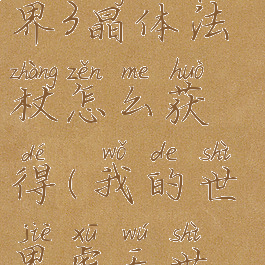 界3晶体法
zhàng zěn me huò
杖怎么获
dé wǒ de shì
得(我的世
jiè xū wú shì